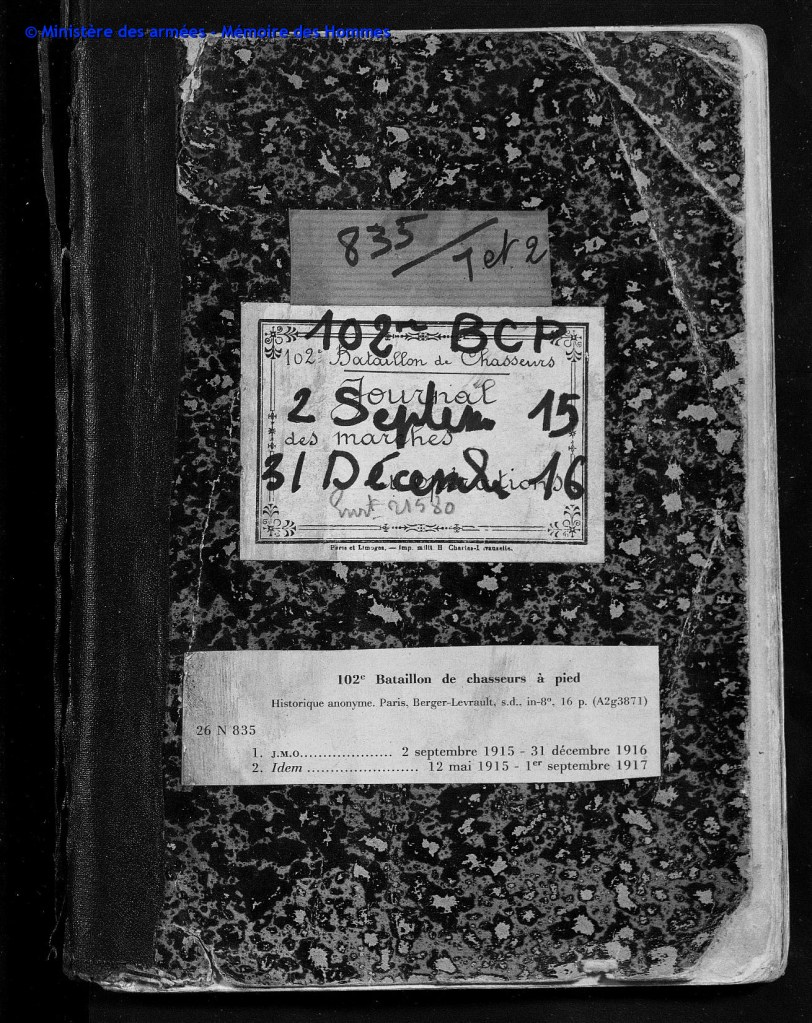 © Ministère des armées - Mémoire des Hommes
835/1 et 2
102me BCP
102e Bataillon de Chasseurs
Journal
2 Septem 15
des marches
31 Décembre 16
opérations
21580
Paris et Limoges. — Imp. milit. H Charles-Lavauzelle.
102e Bataillon de chasseurs à pied
Historique anonyme. Paris, Berger-Levrault, s.d., in-8º, 16 p. (A2g3871)
26 N 835
1. J.M.O.................... 2 septembre 1915 - 31 décembre 1916
2. Idem ........................ 12 mai 1915 - 1er septembre 1917